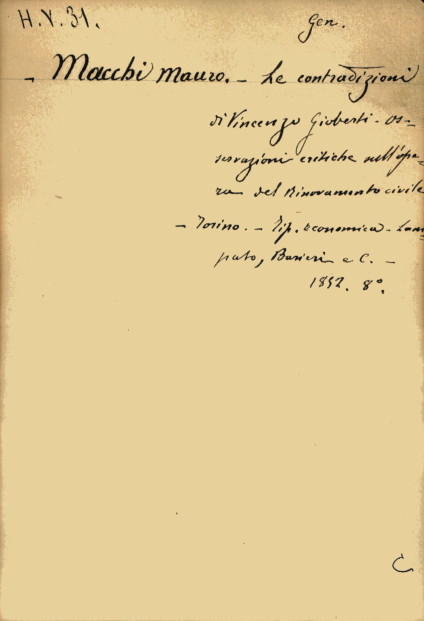 H.V.31.
Gen.
- Macchi Mauro. - Le contradizioni
di Vincenzo Gioberti - Os-
servazioni critiche sull'ope-
ra del Rinovamento civile
- Torino. - Tip. Economica - Lam-
pato, Barieri e C. -
1852. 8°.
C